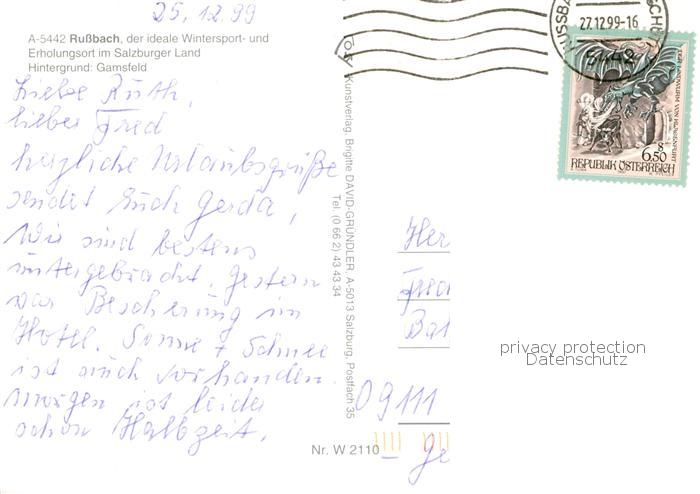 25.12.99
A-5442 Rußbach, der ideale Wintersport- und
Erholungsort im Salzburger Land
Hintergrund: Gamsfeld
Liebe Ruth,
lieber Fred
herzliche Urlaubsgrüße
sendet Euch Gerda,
Wir sind bestens
untergebracht. Gestern
war Bescherung im
Hotel. Sonne + Schnee
ist auch vorhanden.
morgen ist leider
schon Halbzeit.
Kunstverlag, Brigitte DAVID-GRÜNDLER, A-5013 Salzburg, Postfach 35
Tel. (0 66 2) 43 43 34
Nr. W 2110
27.12.99-16
5442
DER LINDWURM VON KLAGENFURT
S
6,50
REPUBLIK ÖSTERREICH
Her
Fred
Bat
09111
- Ge
privacy protection
Datenschutz